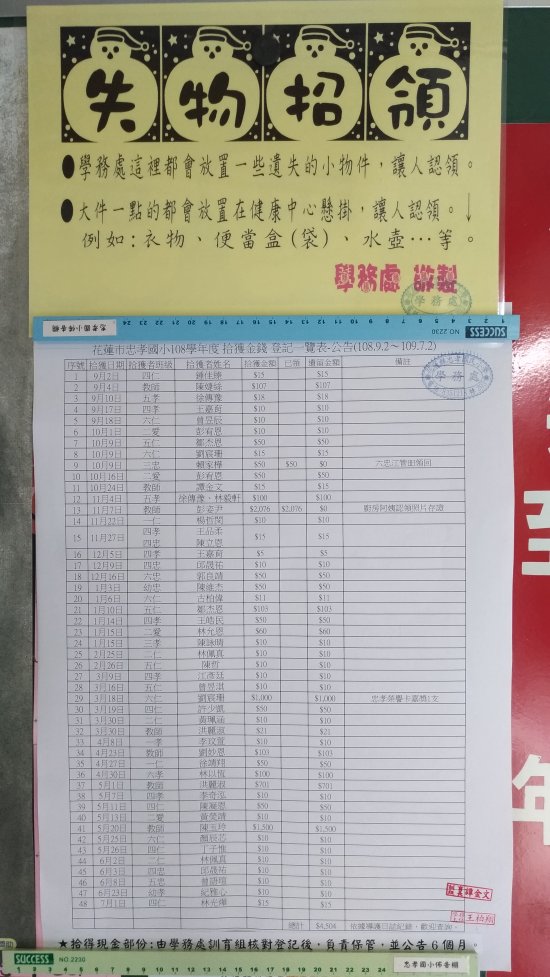 失物招領
●學務處這裡都會放置一些遺失的小物件，讓人認領。
●大件一點的都會放置在健康中心懸掛，讓人認領。↓
例如:衣物、便當盒(袋)、水壺…等。
學務處 敬製
學務處
SUCCESS NO.2230
忠孝國小佈告欄
花蓮市忠孝國小108學年度 拾獲金錢 登記一覽表-公告(108.9.2～109.7.2)
序號 拾獲日期 拾獲者班級 拾獲者姓名 拾獲金額 已領 遺留金額 備註
學務處
1 9月2日 四仁 $15 $15
2 9月4日 教師 $107 $107
3 9月10日 五孝 徐傳豫 $18 $18
4 9月17日 四孝 王嘉裔 $10 $10
5 9月18日 六仁 曾昱辰 $10 $10
6 10月1日 二愛 彭宥恩 $10 $10
7 10月9日 五仁 鄒杰恩 $50 $50
8 10月9日 六仁 劉宸珊 $50 $50
9 10月9日 三忠 賴家樺 $50 $50 $0 六忠江管理領回
10 10月16日 二愛 彭宥恩 $50 $50
11 10月24日 教師 譚金文 $15 $15
12 11月4日 五孝 徐傳豫、林毅軒 $100 $100
13 11月7日 教師 彭姿尹 $2,076 $2,076 $0 廚房阿姨認領照片存證
14 11月22日 一仁 楊哲閔 $10 $10
15 11月27日 四孝 王品柔 $15 $15
四忠 陳立恩
16 12月5日 四孝 王嘉裔 $5 $5
17 12月9日 四忠 邱晟祐 $10 $10
18 12月16日 六忠 郭良靖 $50 $50
19 1月3日 幼忠 陳維杰 $50 $50
20 1月6日 六仁 古柏偉 $11 $11
21 1月10日 五仁 鄒杰恩 $103 $103
22 1月14日 四孝 王皓民 $50 $50
23 1月15日 二愛 林允恩 $60 $60
24 1月15日 三孝 陳詠晴 $10 $10
25 2月25日 二仁 林佩真 $10 $10
26 2月26日 五仁 陳哲 $10 $10
27 3月9日 四孝 江彥廷 $10 $10
28 3月16日 五仁 曾昱淇 $10 $10
29 3月18日 六仁 劉宸珊 $1,000 $1,000 忠孝榮譽卡嘉獎1支
30 3月19日 四仁 許少凱 $50 $50
31 3月30日 二仁 黃珮涵 $10 $10
32 3月30日 教師 洪麗淑 $21 $21
33 4月8日 一孝 李玟萱 $10 $10
34 4月23日 教師 劉妙恩 $103 $103
35 4月27日 一仁 徐靖翔 $50 $50
36 4月30日 六孝 林以恆 $100 $100
37 5月1日 教師 洪麗淑 $701 $701
38 5月7日 四孝 李奇泓 $10 $10
39 5月11日 四仁 陳凝恩 $50 $50
40 5月13日 二愛 黃熒清 $10 $10
41 5月20日 教師 陳玉玲 $1,500 $1,500
42 5月25日 六仁 顏辰芯 $10 $10
43 5月26日 四仁 丁子惟 $10 $10
44 6月2日 二仁 林佩真 $10 $10
45 6月3日 四忠 邱晟祐 $10 $10
46 6月8日 五忠 曾語瑄 $10 $10
47 6月23日 幼孝 紀雅心 $10 $10
48 7月1日 四仁 林光燁 $15 $15
6
譚金文
王柏翔
總計 $4,504 依據導護日誌紀錄，歡迎查詢。
★拾得現金部份:由學務處訓育組核對登記後，負責保管，並公告6個月。
SUCCESS NO.2230
忠孝國小佈告欄